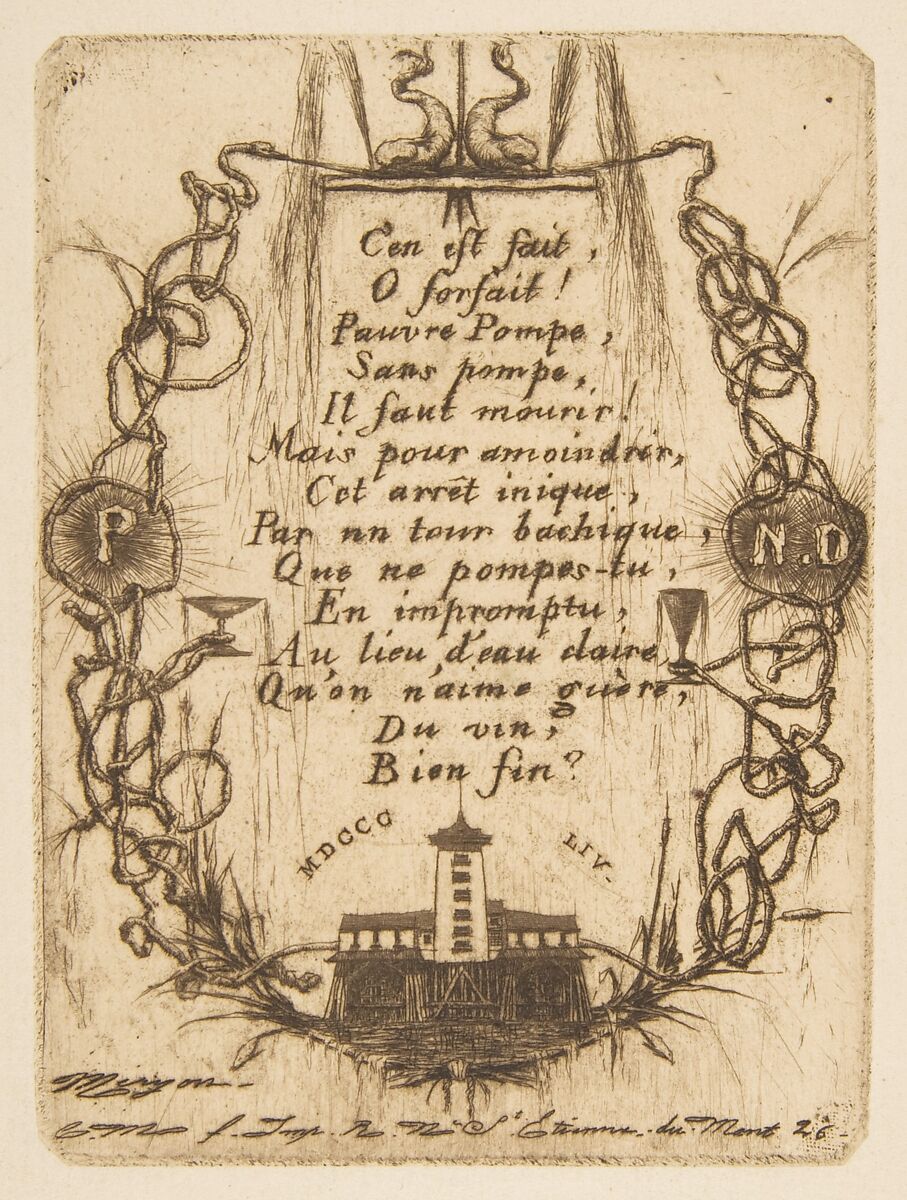 C'en est fait,
O forfait!
Pauvre Pompe,
Sans pompe,
Il faut mourir!
Mais pour amoindrir,
Cet arrêt inique,
Par un tour bachique,
P
N.D
Que ne pompes-tu,
En impromptu,
Au lieu d'eau claire,
Qu'on n'aime guère,
Du vin,
Bien fin?
MDCCC LIV.
Meryon
C.M f. Imp. R. Nve St Etienne-du-Mont 26.